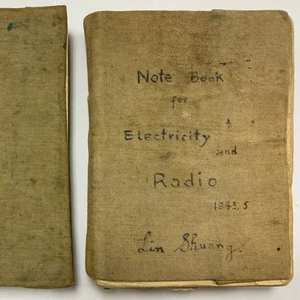 Note Book
for
Electricity
and
Radio
1943.5
Lin Shuang.